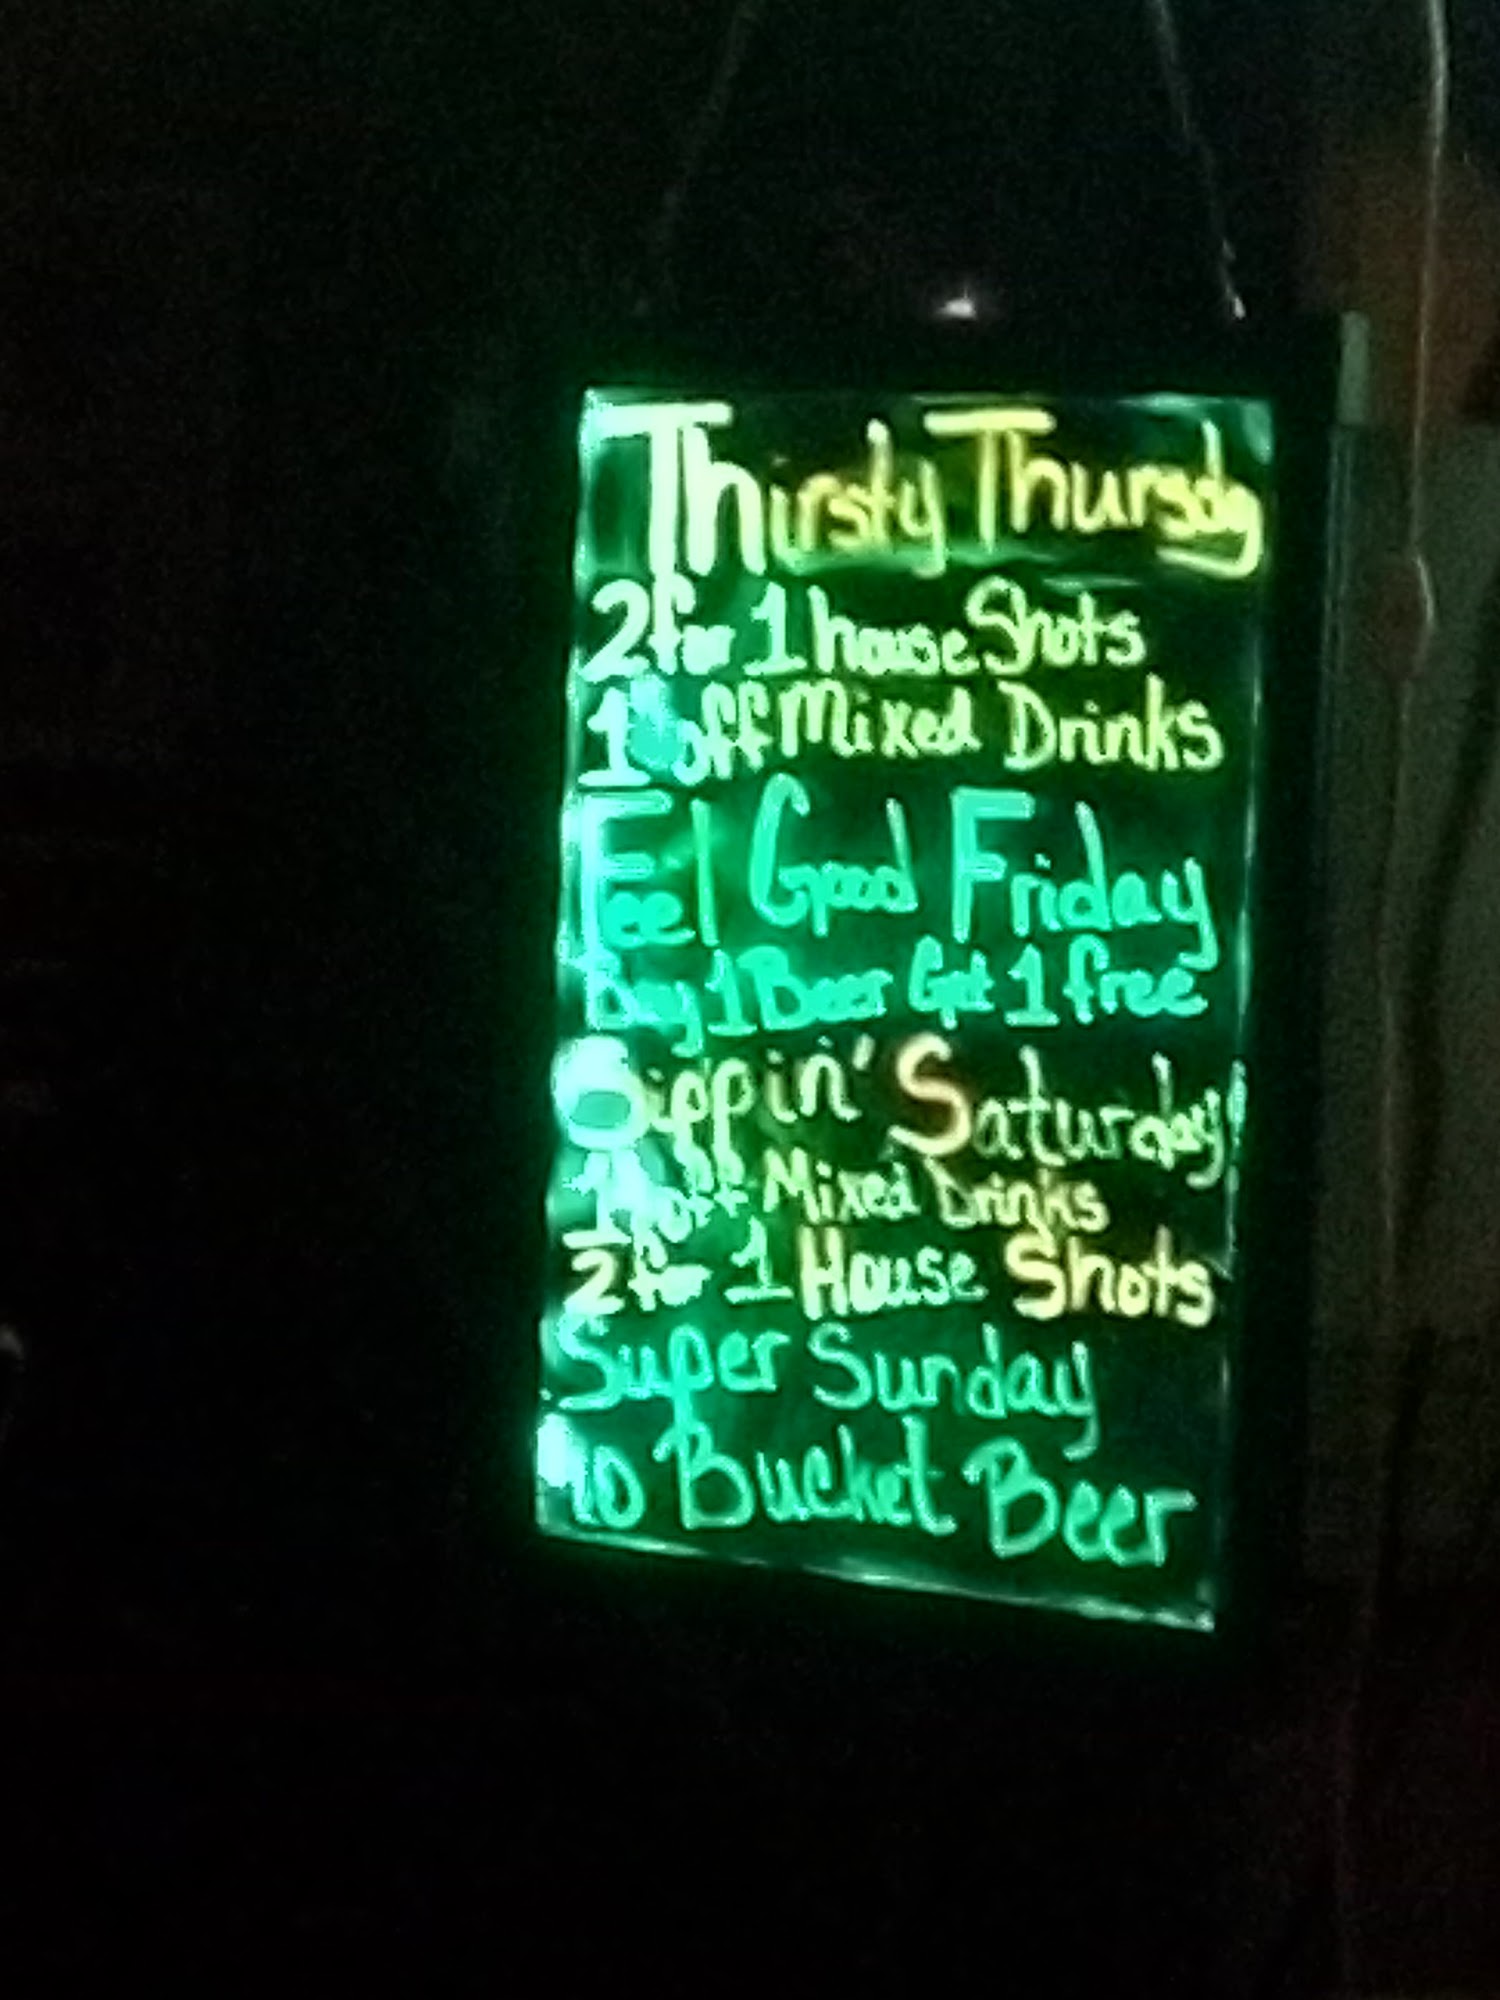 Thirsty Thursday
2 for 1 house Shots
1 off Mixed Drinks
Feel Good Friday
Buy 1 Beer Get 1 free
Sippin' Saturday!
1 off Mixed Drinks
2 for 1 House Shots
Super Sunday
10 Bucket Beer